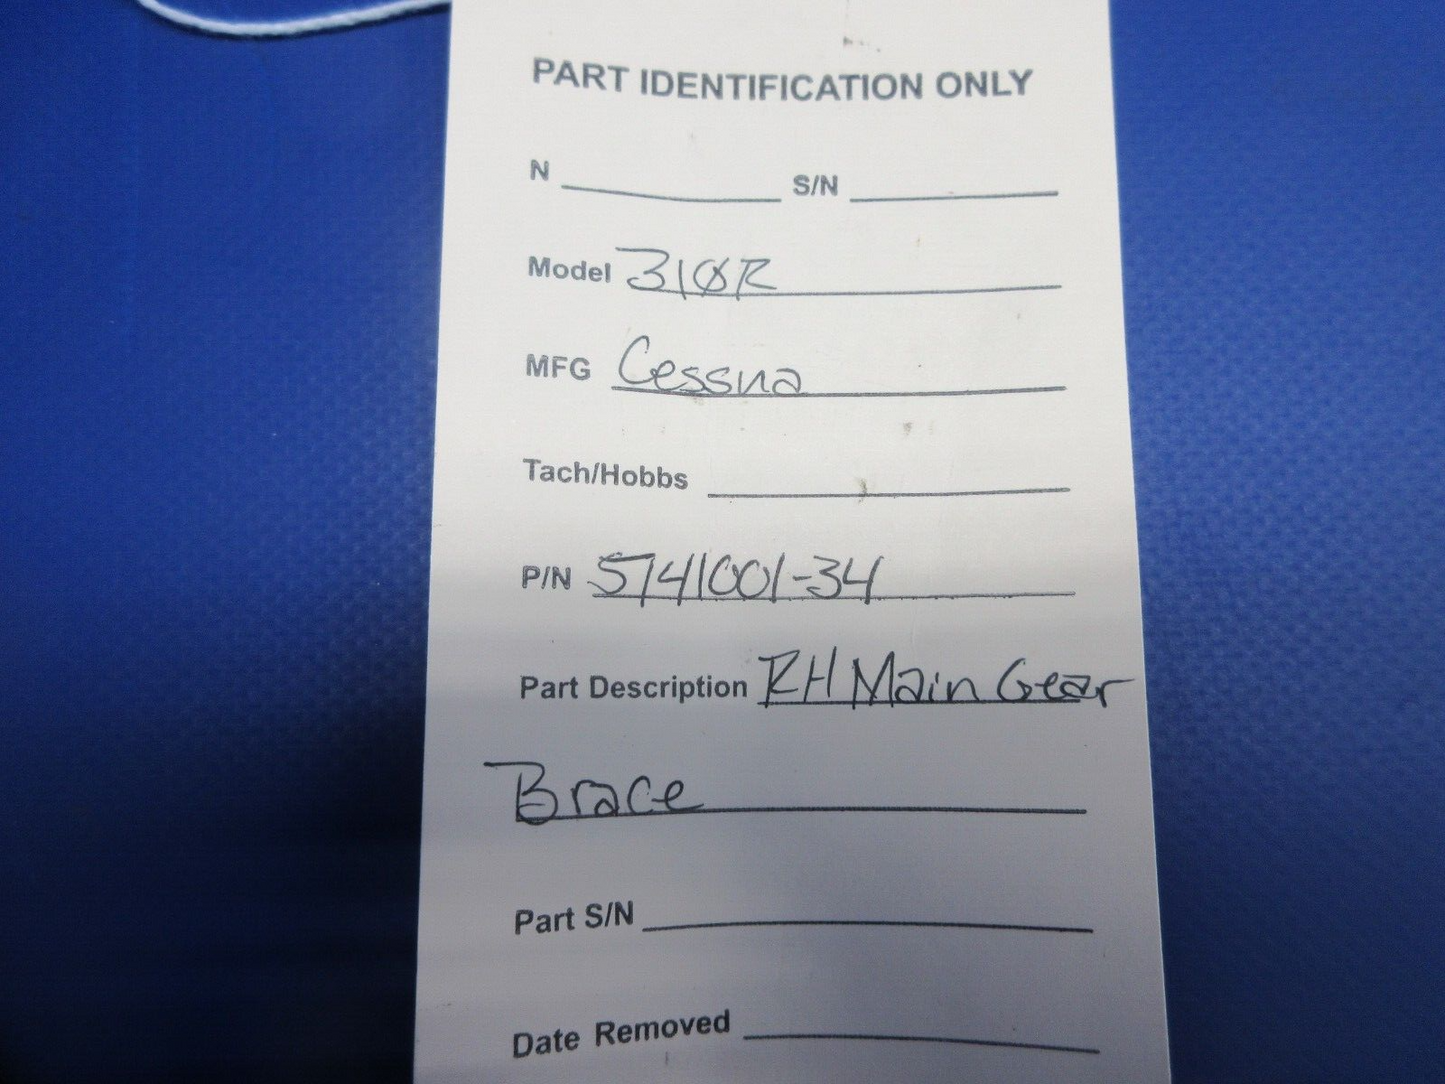 PART IDENTIFICATION ONLY
N S/N
Model 310R
MFG Cessna
Tach/Hobbs
P/N 5741001-34
Part Description RH Main Gear
Brace
Part S/N
Date Removed